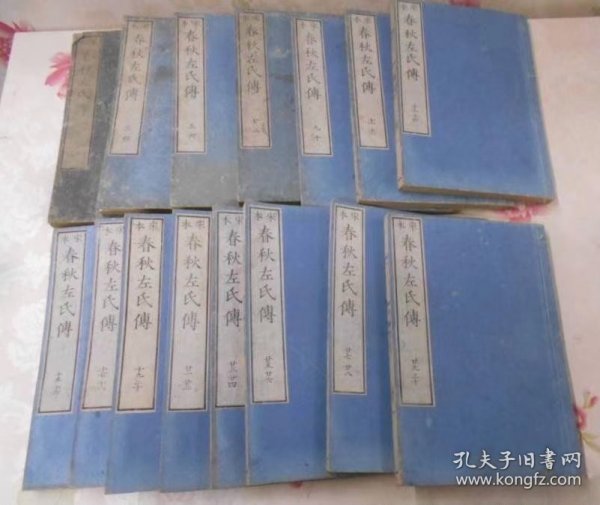 宋本
春秋左氏傳
三四
宋本
春秋左氏傳
五六
宋本
春秋左氏傳
宋本
春秋左氏傳
九十
宋本
春秋左氏傳
宋本
春秋左氏傳
宋本
春秋左氏傳
宋本
春秋左氏傳
宋本
春秋左氏傳
十九二十
宋本
春秋左氏傳
宋本
春秋左氏傳
廿三廿四
宋本
春秋左氏傳
廿五廿六
宋本
春秋左氏傳
廿七廿八
宋本
春秋左氏傳
廿九三十
孔夫子旧书网
www.kongfz.com